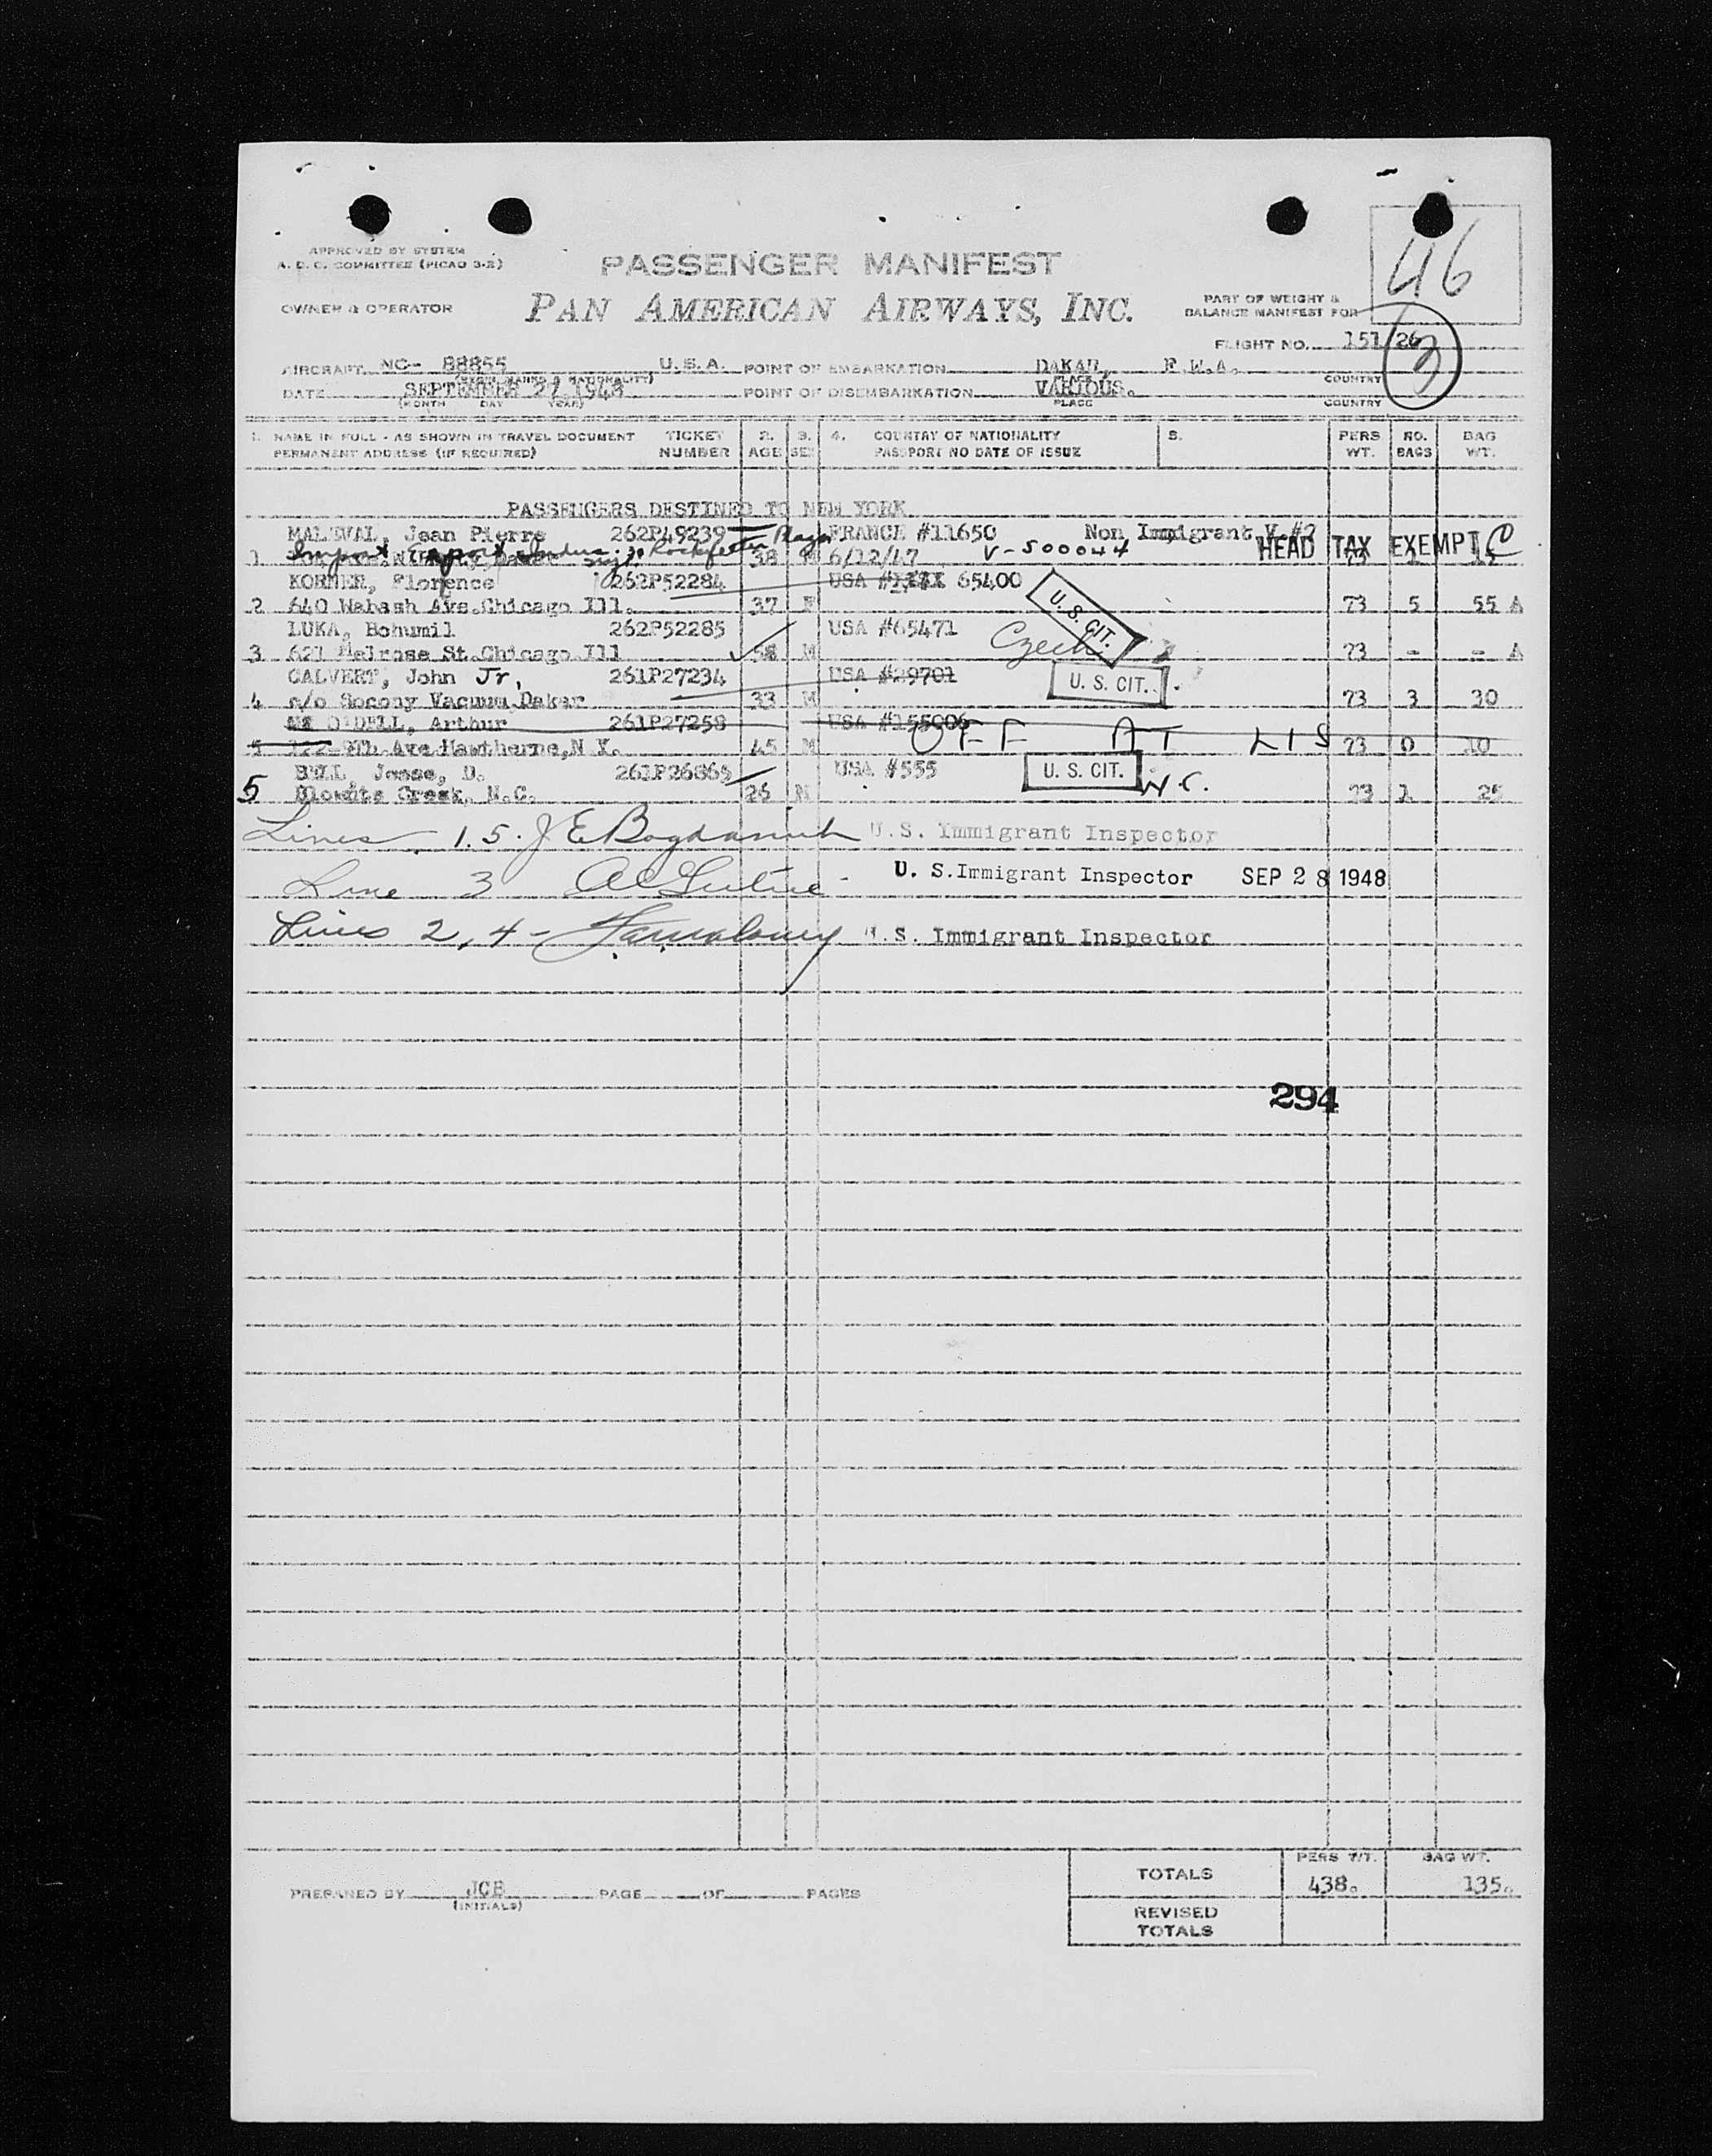 46
APPROVED BY SYSTEM
A. D. C. COMMITTEE (PICAO 3-2)
PASSENGER MANIFEST
OWNER & OPERATOR
PAN AMERICAN AIRWAYS, INC.
PART OF WEIGHT &
BALANCE MANIFEST FOR
FLIGHT NO. 151/26
3
AIRCRAFT NC- 88855 U.S.A. POINT OF EMBARKATION DAKAR, F.W.A. COUNTRY
DATE SEPTEMBER 27 1948 POINT OF DISEMBARKATION VARIOUS.
(MONTH DAY YEAR) PLACE COUNTRY
1. NAME IN FULL - AS SHOWN IN TRAVEL DOCUMENT TICKET 2. 3. 4. COUNTRY OF NATIONALITY 5. PERS NO. BAG
PERMANENT ADDRESS (IF REQUIRED) NUMBER AGE SEX PASSPORT NO DATE OF ISSUE WT. BAGS WT.
PASSENGERS DESTINED TO NEW YORK
MALEVAL, Jean Pierre 262P49239 FRANCE #11650 Non Immigrant V.#3
Import Export Rockfeller Plaza
1 38 M 6/12/47 V-500044 HEAD TAX EXEMPT C
KORNER, Florence 262P52284 USA 65400
2 640 Wabash Ave.Chicago Ill. 37 F U. S. CIT. 73 5 55 A
LUKA, Bohumil 262P52285 USA #65471
3 621 Melrose St.Chicago Ill 58 M Czech 73 - - A
CALVERT, John Jr, 261P27234 USA #29701
4 c/o Socony Vacuum Dakar 33 M U. S. CIT. 73 3 30
O'DELL, Arthur 261P27258 USA #155006
5 122-9th Ave Hawthorne,N Y. 45 M OFF AT LIS 73 0 10
BELL, Jesse, D. 261P26865 USA #555 U. S. CIT.
5 Creek, N.C. 26 M N.C. 73 1 25
Lines 1.5. J E Bogdanich U.S. Immigrant Inspector
Line 3 U. S.Immigrant Inspector SEP 28 1948
Lines 2, 4 - U.S. Immigrant Inspector
294
TOTALS PERS WT. BAG WT.
438. 135.
PREPARED BY JCB PAGE OF PAGES
(INITIALS)
REVISED
TOTALS